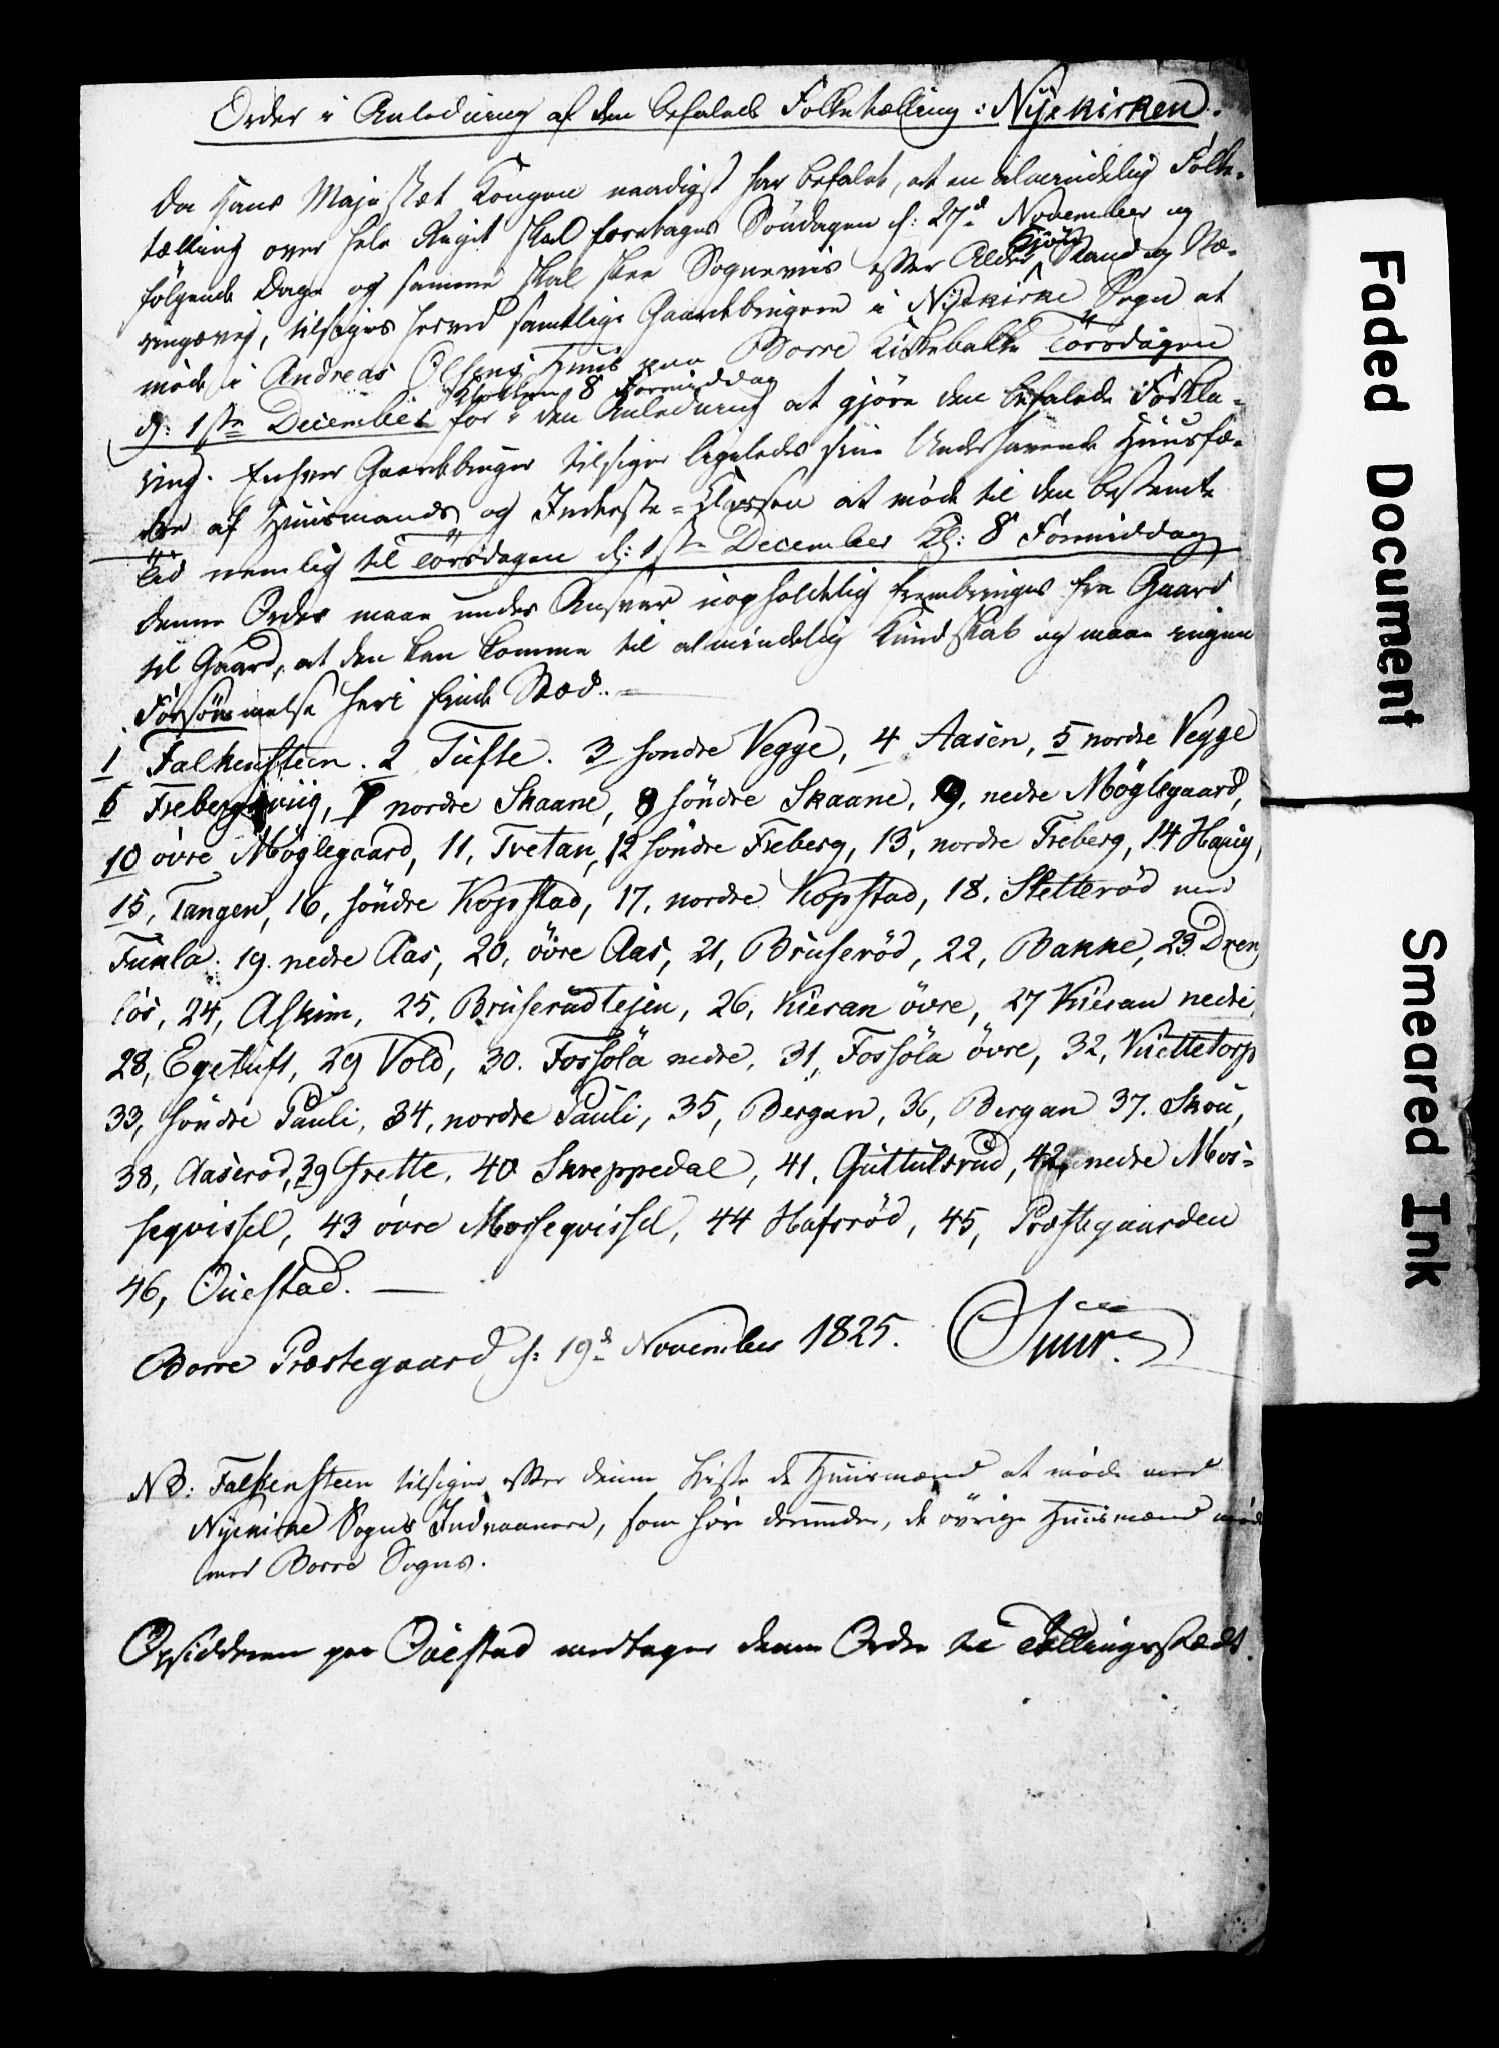 Order i Anledning af den befalede Folketælling i Nÿekirken.
Da Hans Majestæt Kongen naadigst har befalet, at en almindelig Folke-
tælling over hele Riget skal foretages Söndagen d: 27d November og
Kjön
fölgende Dage og samme skal skee Sogneviis efter Alder, Stand og Næ-
ringsvej, tilsiges herved samtlige Gaardbrugere i Nÿekirke Sogn at
möde i Andreas Olsens Huus paa Borre Kirkebakke Torsdagen
Klokken 8 Formiddag
d: 1ste December for i den Anledning at gjöre den befalede Forkla-
ring. Enhver Gaardbruger tilsiger ligeledes sine Underhavende Huusfæ-
dre af Huusmands og Inderste-Classen at möde til den bestemte
Tid nemlig til Torsdagen d: 1ste December Kl: 8 Formiddag
Denne Order maae under Ansvar uopholdelig frembringes fra Gaard
til Gaard, at den kan komme til almindelig Kundskab og maae ingen
Forsömmelse heri finde Sted.
1 Falkensteen. 2 Tufte. 3 söndre Vegge, 4 Aasen, 5 nordre Vegge
6 Frebergsviig, 7 nordre Skaane, 8 söndre Skaane, 9, nedre Möglegaard,
10 övre Möglegaard, 11, Tvetan, 12 söndre Freberg, 13, nordre Freberg, 14 Haug,
15, Tangen, 16, söndre Kopstad, 17, nordre Kopstad, 18. Sletteröd med
Furla. 19. nedre Aas, 20, övre Aas, 21, Bruseröd, 22, Bakke, 23 Dren
lös, 24, Askim, 25, Bruserudlejen, 26, Kieran övre, 27 Kieran nedre,
28, Egetuft, 29 Vold, 30. Fossöla nedre, 31, Fossöla övre, 32, Viettetorp
33, söndre Pauli, 34, nordre Pauli, 35, Bergan, 36, Bergan 37. Skou,
38, Aaseröd, 39 Grette, 40 Skreppedal, 41, Guttulsrud, 42, nedre Mos-
seqvissel, 43 övre Mosseqvissel, 44 Hafsröd, 45, Præstegaarden
46, Ouestad.
Borre Præstegaard d: 19d November 1825.
NB: Falkensteen tilsiger efter denne Liste de Huusmænd at möde med
Nÿekirke Sogns Indvaanere, som höre derunder, de övrige Huusmænd möde
med Borre Sogns.
Opsidderen paa Ouestad medtager denne Order til Tællingsstedet.
Faded Document
Smeared Ink